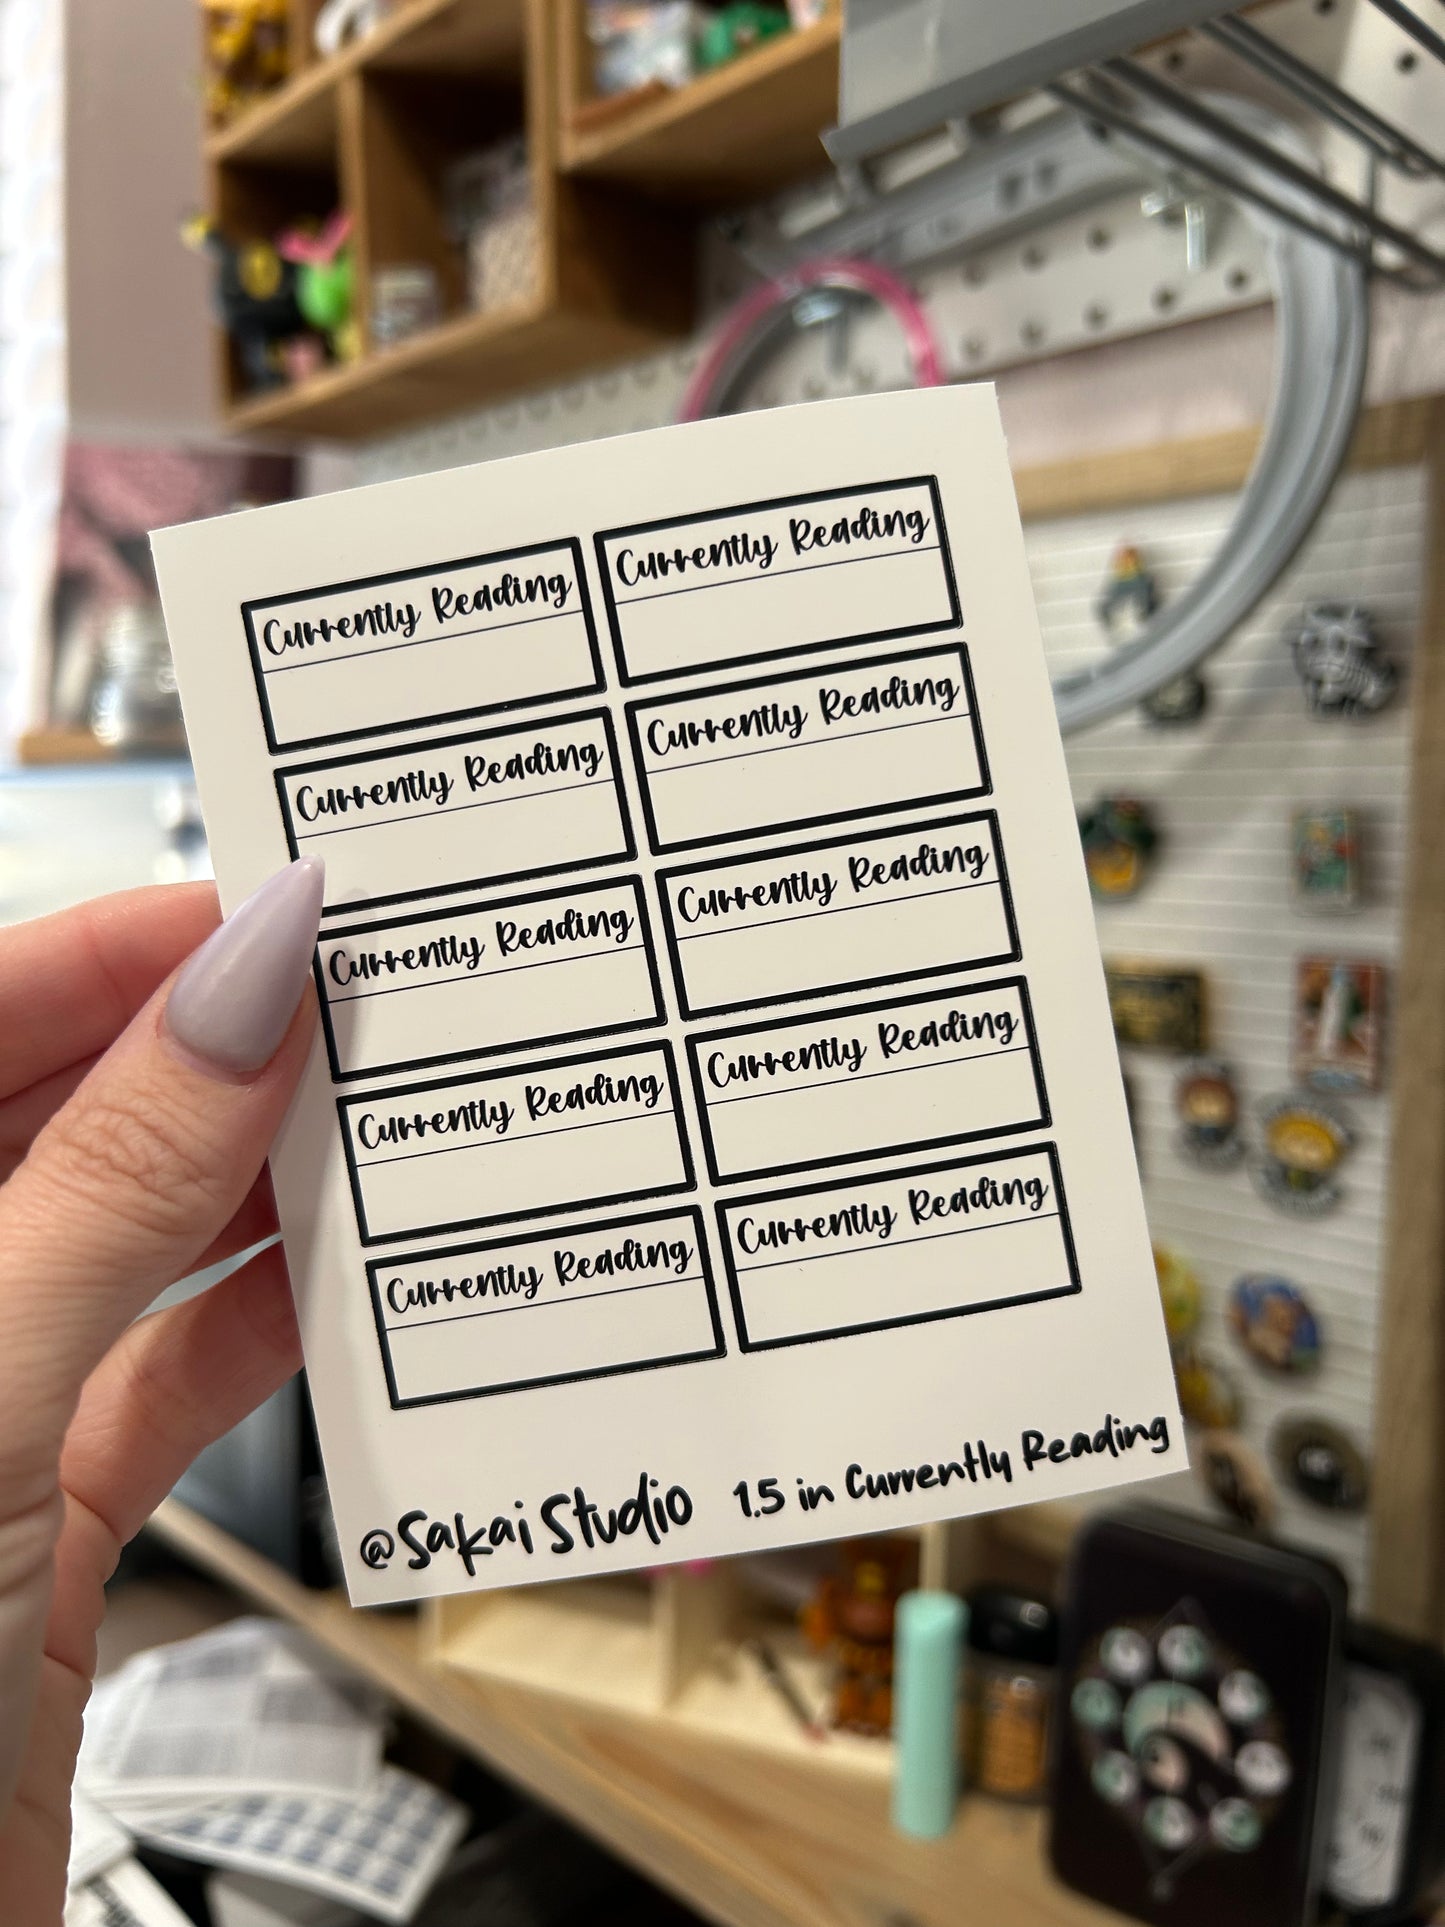 Currently Reading
Currently Reading
Currently Reading
Currently Reading
Currently Reading
Currently Reading
Currently Reading
Currently Reading
Currently Reading
Currently Reading
@Sakai Studio 1.5 in Currently Reading